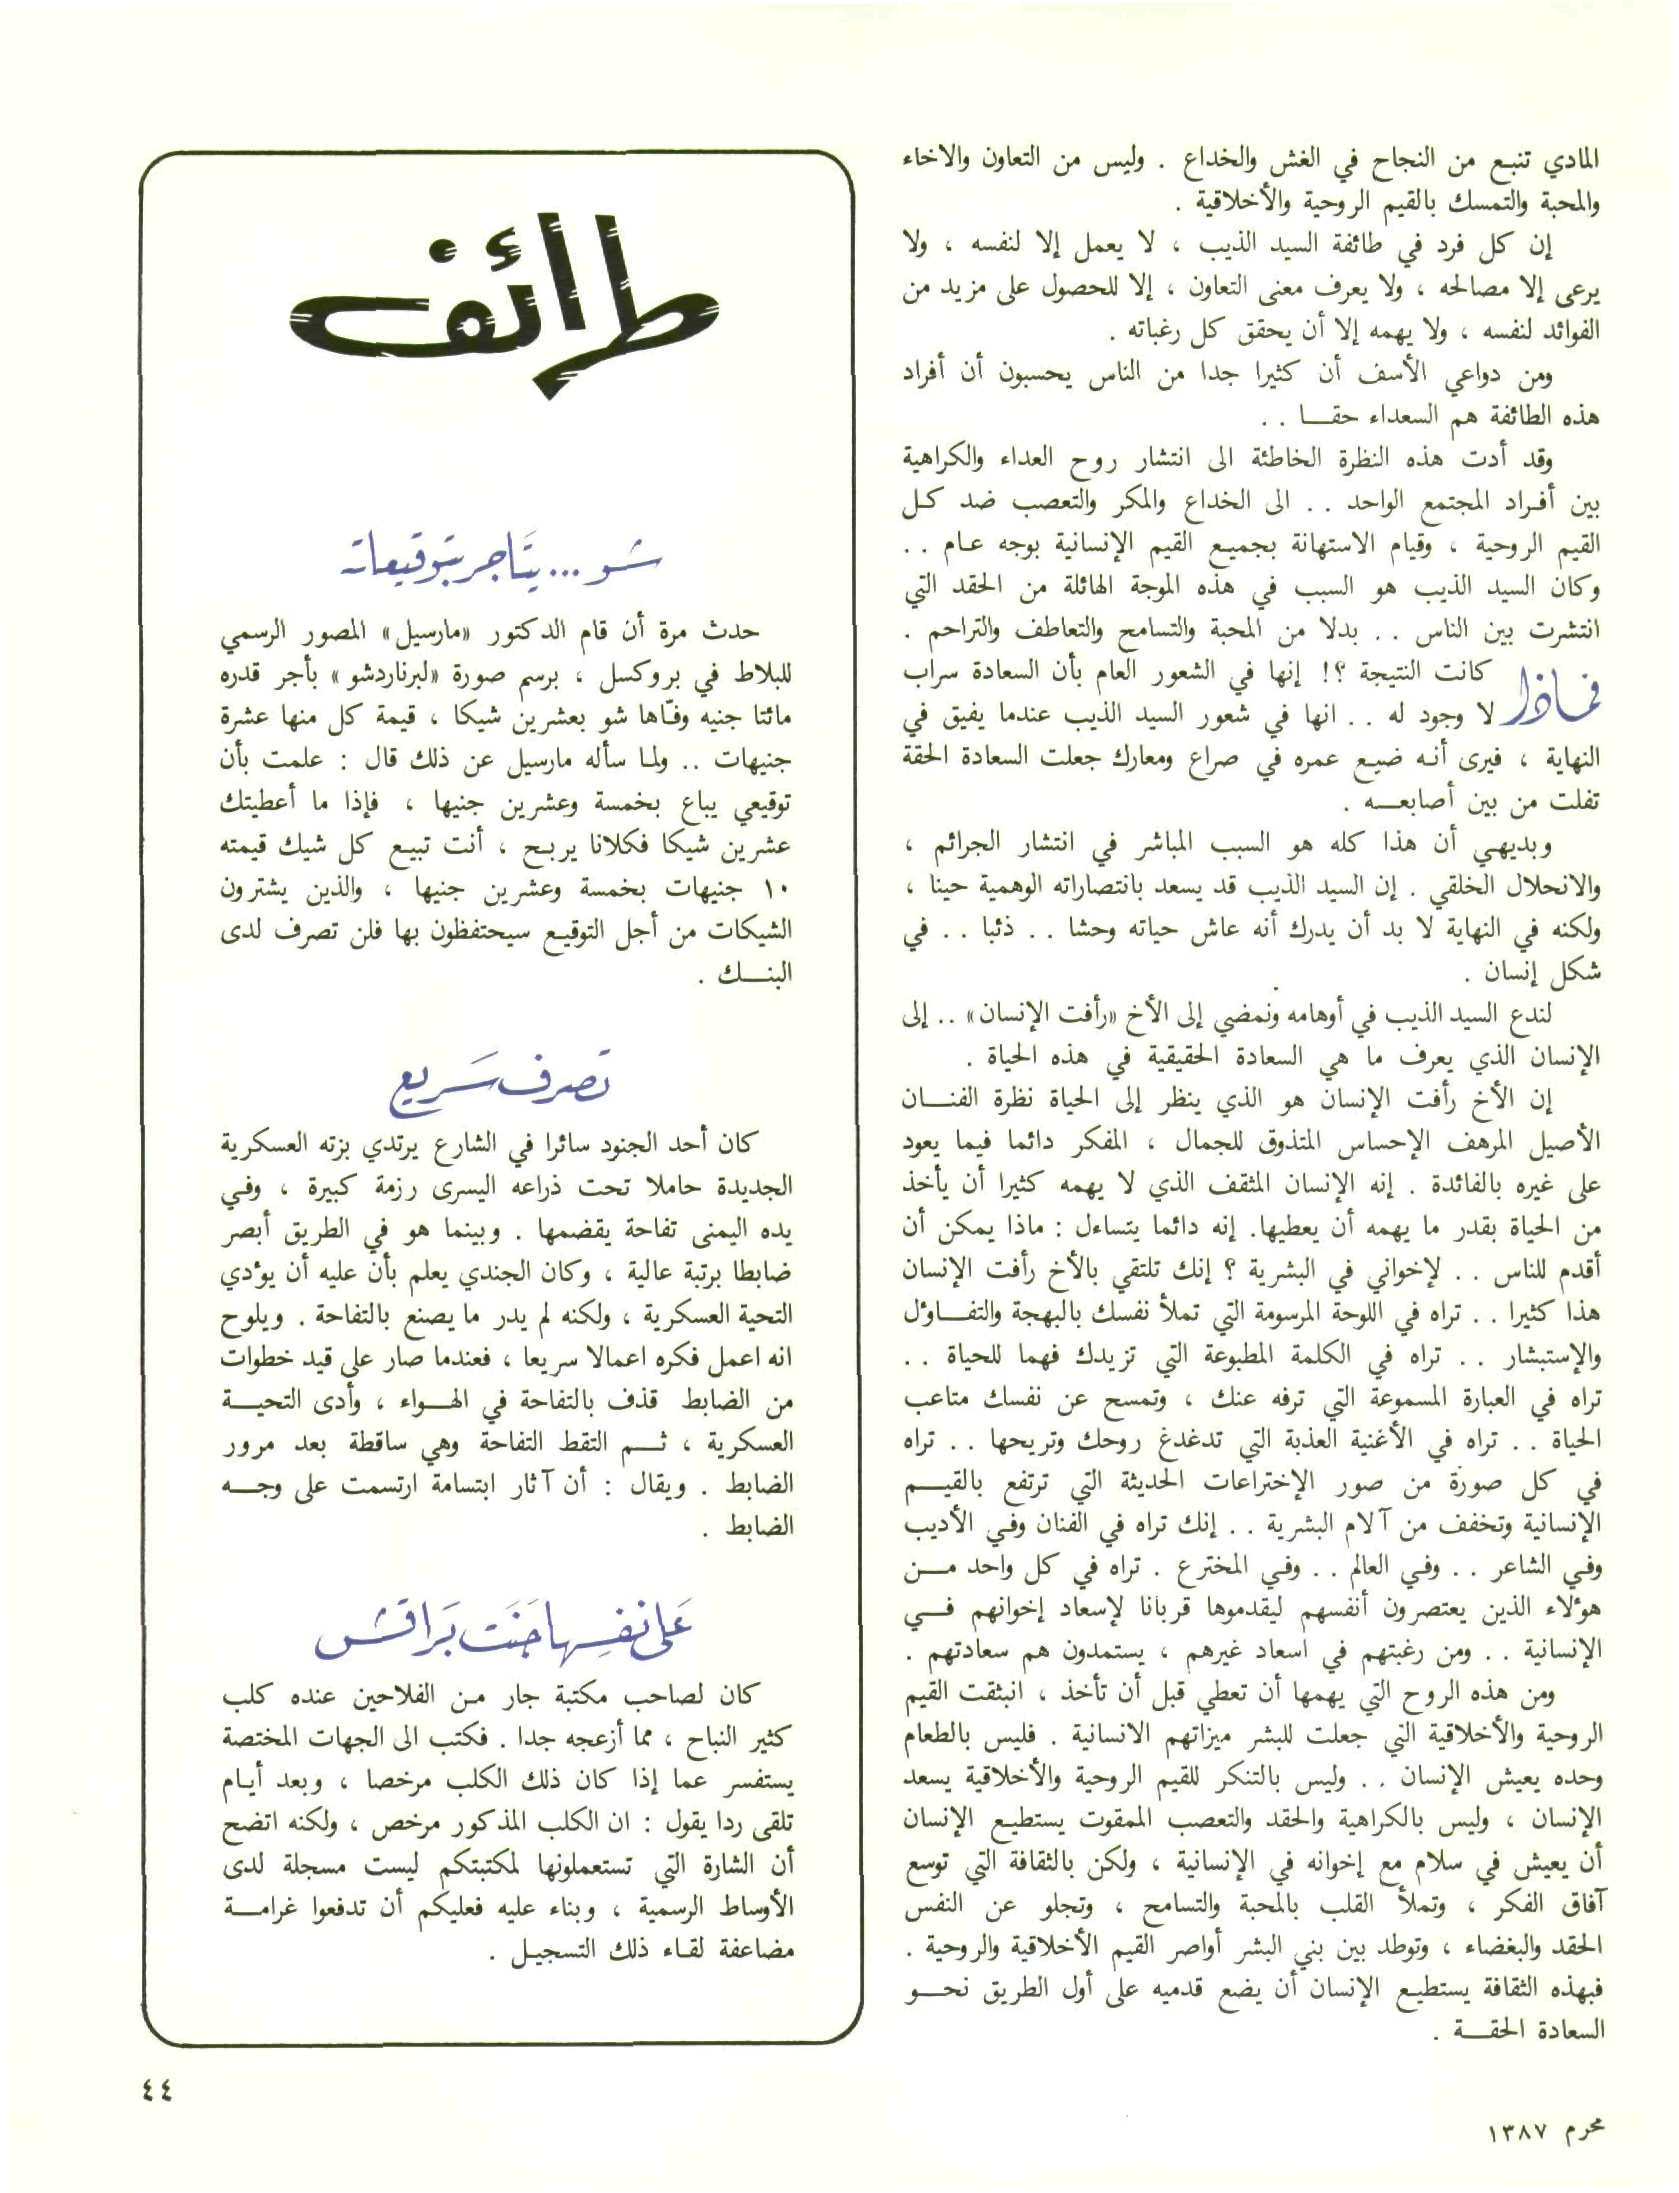 المادي تنبع من النجاح في الغش والخداع . وليس من التعاون والاخاء
والمحبة والتمسك بالقيم الروحية والأخلاقية .
إن كل فرد في طائفة السيد الذيب ، لا يعمل إلا لنفسه ، ولا
يرعى إلا مصالحه ، ولا يعرف معنى التعاون ، إلا للحصول على مزيد من
الفوائد لنفسه ، ولا يهمه إلا أن يحقق كل رغباته .
ومن دواعي الأسف أن كثيرا جدا من الناس يحسبون أن أفراد
هذه الطائفة هم السعداء حقـــا . .
وقد أدت هذه النظرة الخاطئة الى انتشار روح العداء والكراهية
بين أفـراد المجتمع الواحد . . الى الخداع والمكر والتعصب ضد كـل
القيم الروحية ، وقيام الاستهانة بجميـع القيم الإنسانية بوجه عـام . .
وكان السيد الذيب هو السبب في هذه الموجة الهائلة من الحقد التي
انتشرت بين الناس . . بدلا من المحبة والتسامح والتعاطف والتراحم .
فماذا كانت النتيجة ؟! إنها في الشعور العام بأن السعادة سراب
لا وجود له . . انها في شعور السيد الذيب عندما يفيق في
النهاية ، فيرى أنـه ضيـع عمره في صراع ومعارك جعلت السعادة الحقة
تفلت من بين أصابعـــه .
وبديهـي أن هذا كله هو السبب المباشر في انتشار الجرائم ،
والانحلال الخلقي . إن السيد الذيب قد يسعد بانتصاراته الوهمية حينا ،
ولكنه في النهاية لا بد أن يدرك أنه عاش حياته وحشا . . ذئبا . . في
شكل إنسان .
لندع السيد الذيب في أوهامه ونمضي إلى الأخ «رأفت الإنسان» . . إلى
الإنسان الذي يعرف ما هي السعادة الحقيقية في هذه الحياة .
إن الأخ رأفت الإنسان هو الذي ينظر إلى الحياة نظرة الفنـــان
الأصيل المرهف الإحساس المتذوق للجمال ، المفكر دائما فيما يعود
على غيره بالفائدة . إنه الإنسان المثقف الذي لا يهمه كثيرا أن يأخذ
من الحياة بقدر ما يهمه أن يعطيها. إنه دائما يتساءل : ماذا يمكن أن
أقدم للناس . . لإخواني في البشرية ؟ إنك تلتقي بالأخ رأفت الإنسان
هذا كثيرا . . تراه في اللوحة المرسومة التي تملأ نفسك بالبهجة والتفـــاؤل
والإستبشار . . تراه في الكلمة المطبوعة التي تزيدك فهما للحياة . .
تراه في العبارة المسموعة التي ترفه عنك ، وتمسح عن نفسك متاعب
الحياة . . تراه في الأغنية العذبة التي تدغدغ روحك وتريحها . . تراه
في كل صورة من صور الإختراعات الحديثة التي ترتفع بالقيـــم
الإنسانية وتخفف من آلام البشرية . . إنك تراه في الفنان وفـي الأديب
وفـي الشاعر . . وفـي العالم . . وفـي المخترع . تراه في كل واحد مـــن
هؤلاء الذين يعتصرون أنفسهم ليقدموها قربانا لإسعاد إخوانهم فـــي
الإنسانية . . ومن رغبتهم في اسعاد غيرهم ، يستمدون هم سعادتهم .
ومن هذه الروح التي يهمها أن تعطي قبل أن تأخذ ، انبثقت القيم
الروحية والأخلاقية التي جعلت للبشر ميزاتهم الانسانية . فليس بالطعام
وحده يعيش الإنسان . . وليس بالتنكر للقيم الروحية والأخلاقية يسعد
الإنسان ، وليس بالكراهية والحقد والتعصب الممقوت يستطيـع الإنسان
أن يعيش في سلام مع إخوانه في الإنسانية ، ولكن بالثقافة التي توسع
آفاق الفكر ، وتملأ القلب بالمحبة والتسامح ، وتجلو عن النفس
الحقد والبغضاء ، وتوطد بين بني البشر أواصر القيم الأخلاقية والروحية .
فبهذه الثقافة يستطيـع الإنسان أن يضع قدميه على أول الطريق نحـــو
السعادة الحقـــة .
طرائف
شـو ... يتَاجر بتوقيعاته
حدث مرة أن قام الدكتور «مارسيل» المصور الرسمي
للبلاط في بروكسل ، برسم صورة «لبرناردشو» بأجر قدره
مائتا جنيه وفّاها شو بعشرين شيكا ، قيمة كل منها عشرة
جنيهات .. ولمـا سأله مارسيل عن ذلك قال : علمت بأن
توقيعي يباع بخمسة وعشرين جنيها ، فإذا ما أعطيتك
عشرين شيكا فكلانا يربـح ، أنت تبيـع كل شيك قيمته
١٠ جنيهات بخمسة وعشرين جنيها ، والذين يشترون
الشيكات من أجل التوقيـع سيحتفظون بها فلن تصرف لدى
البنـــك .
تصرف سَريع
كان أحد الجنود سائرا في الشارع يرتدي بزته العسكرية
الجديدة حاملا تحت ذراعه اليسرى رزمة كبيرة ، وفـي
يده اليمنى تفاحة يقضمها . وبينما هو في الطريق أبصر
ضابطا برتبة عالية ، وكان الجندي يعلم بأن عليه أن يؤدي
التحية العسكرية ، ولكنه لم يدر ما يصنع بالتفاحة . ويلوح
انه اعمل فكره اعمالا سريعا ، فعندما صار على قيد خطوات
من الضابط قذف بالتفاحة في الهـــواء ، وأدى التحيـــة
العسكرية ، ثـــم التقط التفاحة وهي ساقطة بعد مرور
الضابط . ويقال : أن آثار ابتسامة ارتسمت على وجـــه
الضابط .
عَلى نفسِها جَنَت بَراقش
كان لصاحب مكتبة جار مـن الفلاحين عنده كلب
كثير النباح ، مما أزعجه جدا . فكتب الى الجهات المختصة
يستفسر عما إذا كان ذلك الكلب مرخصا ، وبعد أيـام
تلقى ردا يقول : ان الكلب المذكور مرخص ، ولكنه اتضح
أن الشارة التي تستعملونها لمكتبتكم ليست مسجلة لدى
الأوساط الرسمية ، وبناء عليه فعليكم أن تدفعوا غرامـــة
مضاعفة لقـاء ذلك التسجيـل .
٤٤
محرم ١٣٨٧